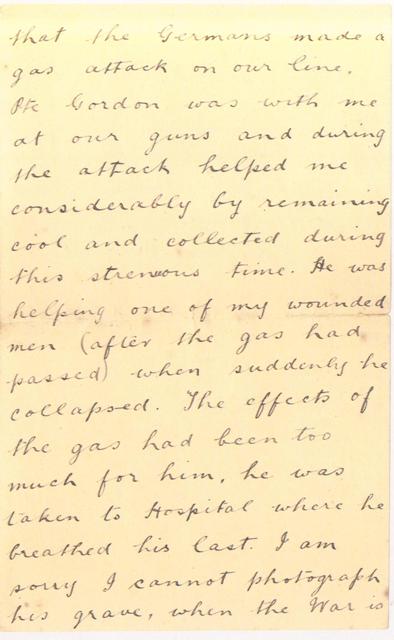 that the Germans made a
gas attack on our line.
Pte Gordon was with me
at our guns and during
the attack helped me
considerably by remaining
cool and collected during
this strenous time. He was
helping one of my wounded
men (after the gas had
passed) when suddenly he
collapsed. The effects of
the gas had been too
much for him, he was
taken to Hospital where he
breathed his last. I am
sorry I cannot photograph
his grave, when the War is